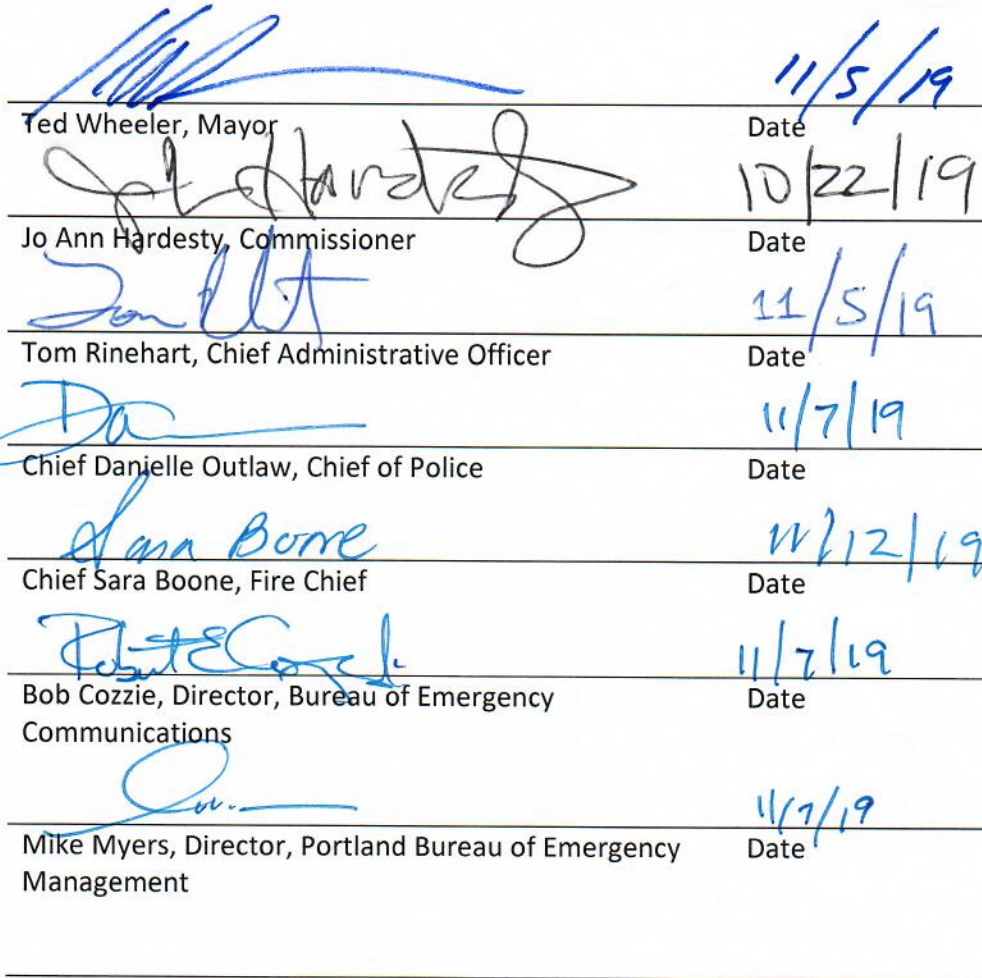 11/5/19
Ted Wheeler, Mayor Date
Jo Hardesty 10/22/19
Jo Ann Hardesty, Commissioner Date
Tom 11/5/19
Tom Rinehart, Chief Administrative Officer Date
Da 11/7/19
Chief Danielle Outlaw, Chief of Police Date
Sara Boone 11/12/19
Chief Sara Boone, Fire Chief Date
Robert E Cozzie 11/7/19
Bob Cozzie, Director, Bureau of Emergency Date
Communications
11/7/19
Mike Myers, Director, Portland Bureau of Emergency Date
Management